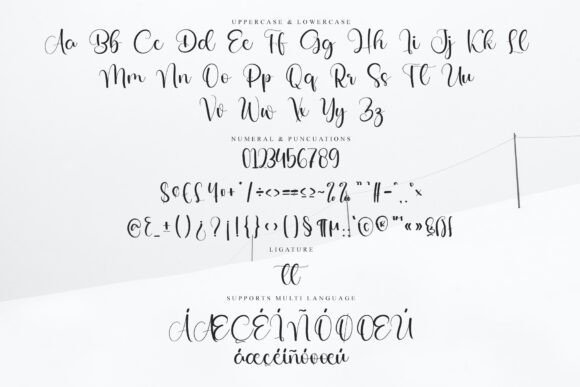 UPPERCASE & LOWERCASE
Aa Bb Cc Dd Ee Ff Gg Hh Ii Jj Kk Ll
Mm Nn Oo Pp Qq Rr Ss Tt Uu
Vv Ww Xx Yy Zz
NUMERAL & PUNCUATIONS
0123456789
@
LIGATURE
tt
SUPPORTS MULTI LANGUAGE
ÁÆÇÉÍÑÓØŒÚ
áæçéíñóøœú